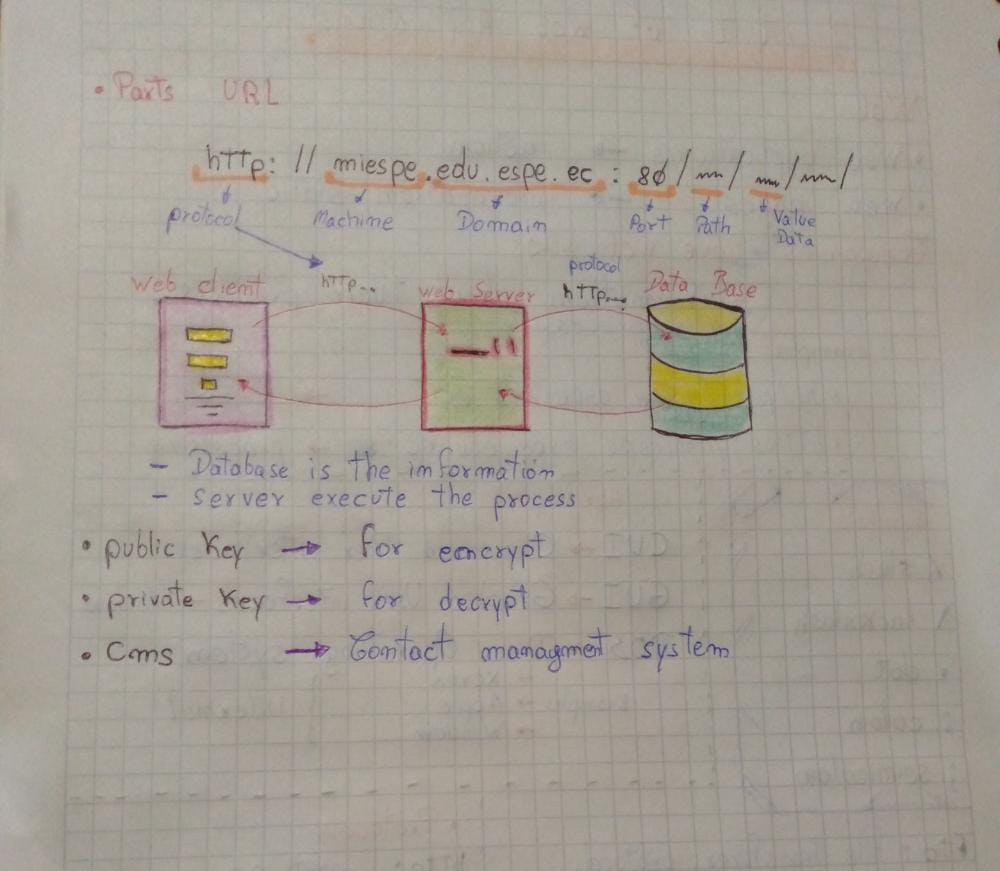 • Parts URL
http: // miespe.edu.espe.ec : 80/ / / /
protocol Machine Domain Port Path Value Data
web client http... web Server protocol http.... Data Base
- Database is the information
- Server execute the process
• public Key → for eencrypt
• private Key → for decrypt
• Cms → Contact managment system